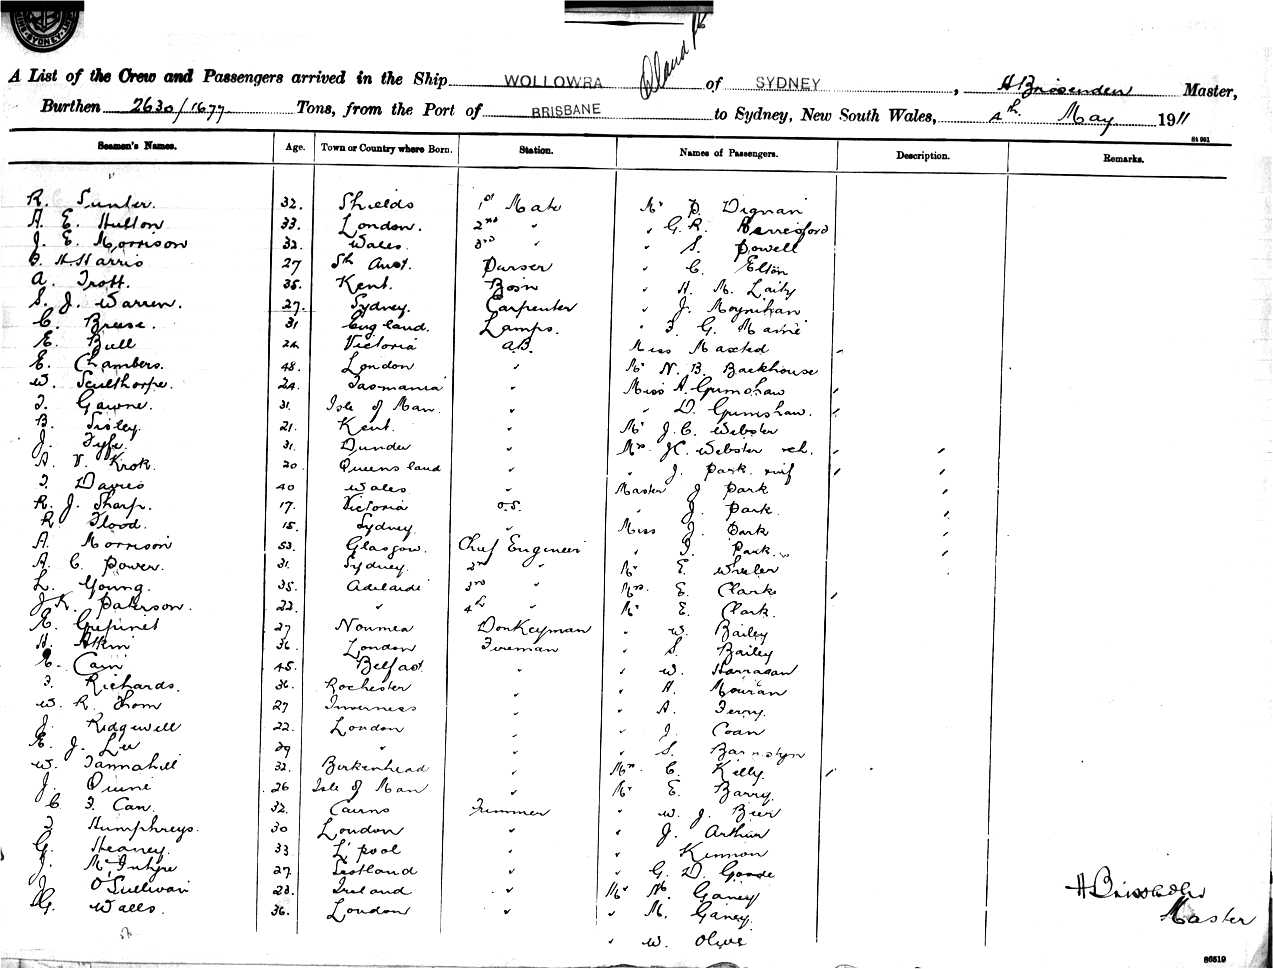 A List of the Crew and Passengers arrived in the Ship WOLLOWRA of SYDNEY, H Brissenden Master,
Burthen 2630/1677 Tons, from the Port of BRISBANE to Sydney, New South Wales, 4th May 1911
Seamen's Names. Age. Town or Country where Born. Station. Names of Passengers. Description. Remarks.
R. Sunter. 32. Shields 1st Mate Mr D. Dignan
A. E. Hutton 33. London. 2nd " " G. R. Berresford
J. E. Morrison 32. Wales. 3rd " " S. Powell
H. Harris 27 Sth Aust. Purser " C. Elton
A. Trott. 35. Kent. Bosn " H. M. Laity
S. J. Warren. 27. Sydney. Carpenter " J. Moynihan
C. Breese. 31 England. Lamps. " F. G.
E. Bull 24 Victoria A.B. Miss Maxted
E. Chambers. 48. London " Mr N. B. Backhouse
W. Sculthorpe. 24. Tasmania " Miss A. Grimshaw
T. Gawne. 31. Isle of Man " " D. Grimshaw.
B. Sisley. 21. Kent. " Mr J. C. Webster
J. Fyfe. 31. Dundee " Mrs J C. Webster
A. V. Krok. 20 Queensland " " J. Park
T. Davies 40 Wales " Master J Park
R. J. Sharp. 17. Victoria O.S. " J. Park.
R. Flood. 18. Sydney " Miss J. Park
A. Morrison 53. Glasgow. Chief Engineer " J. Park
A. C. Power. 31. Sydney 2nd " Mr E. Wheeler
L. Young. 35. Adelaide 3rd " Mrs E. Clark
J. K. Paterson. 22. " 4th " Mr E. Clark.
27 Noumea Donkeyman " W. Bailey
H. Atkin 36. London Fireman " S. Bailey
E. Cain 45. Belfast. " " W. Harragan
F. Richards. 36. Rochester " " H. Mouran
W. R. Thom 27 Inverness " " A. Terry.
J. Ridgewell 22. London " " J. Coan
E. J. Lee 29 " " " S.
W. Tannahill 32. Birkenhead " Mrs C. Kelly.
J. Quine 26 Isle of Man " Mr E. Barry
C F. Can. 32. Cairns Trimmer " W. J. Bier
J. Humphreys. 30 London " " J. Arthur
G. Heaney. 33 L'pool " " Kinnon
J. McIntyre 27. Scotland " " G. D. Goode
J. O'Sullivan 23. Ireland " Mr M. Ganey
G. Walls. 36. London " " M. Ganey.
" W. Olive
Master
86519